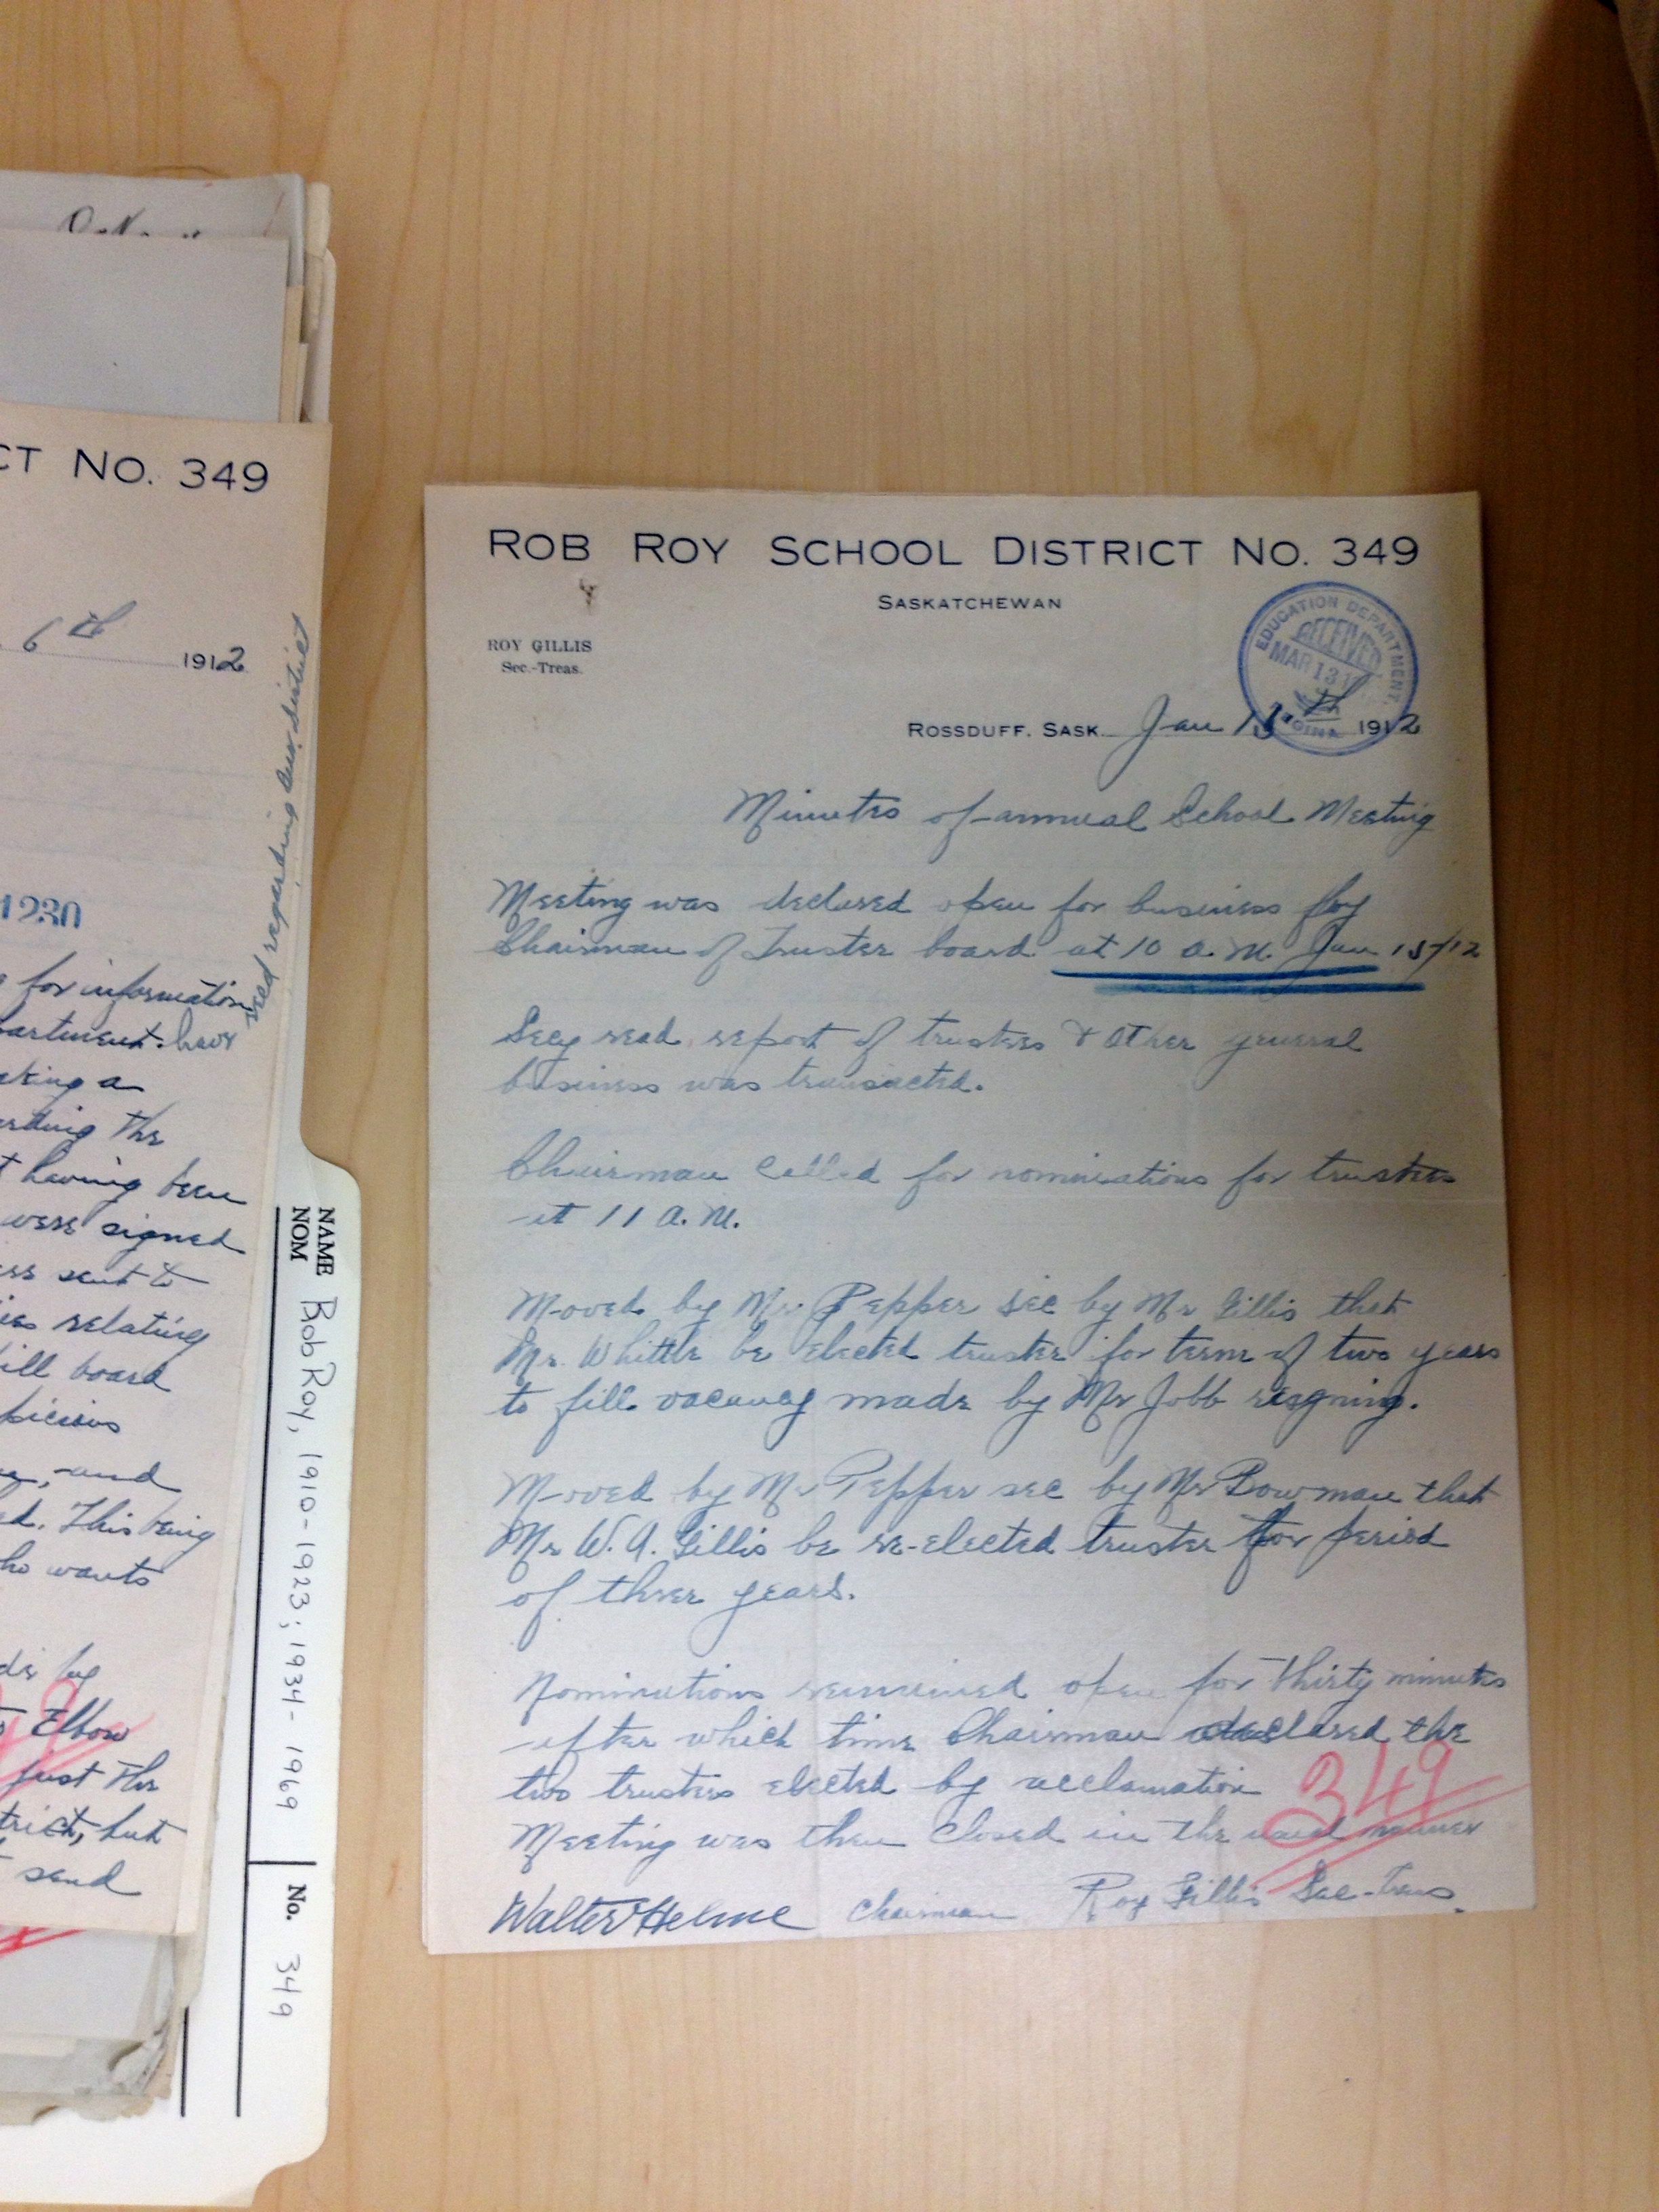 CT NO. 349
6th 1912
sted regarding our district
1230
for information
partment have
aking a
arding the
t having been
were signed
ess sent to
ies relating
ill board
picious
and
ed. This being
ho wants
de by
to Elbow
just the
trict, but
send
NAME
NOM
Rob Roy, 1910-1923; 1934-1969
No. 349
ROB ROY SCHOOL DISTRICT NO. 349
SASKATCHEWAN
ROY GILLIS
Sec.-Treas.
EDUCATION DEPARTMENT.
RECEIVED
MAR 13
REGINA
ROSSDUFF, SASK. Jan 15th 1912
Minutes of annual School Meeting
Meeting was declared open for business by
Chairman of Trustee board at 10 a.m. Jan 15/12
Secy read report of trustees & other general
business was transacted.
Chairman called for nominations for trustees
at 11 A.M.
Moved by Mr. Pepper sec by Mr Gillis that
Mr. Whittle be elected trustee for term of two years
to fill vacancy made by Mr Jobb resigning.
Moved by Mr Pepper sec by Mr Bowman that
Mr W. A. Gillis be re-elected trustee for period
of three years.
Nominations remained open for thirty minutes
after which time Chairman declared the
two trustees elected by acclamation
Meeting was then closed in the usual manner
349
Walter Helme Chairman Roy Gillis Sec-Treas.